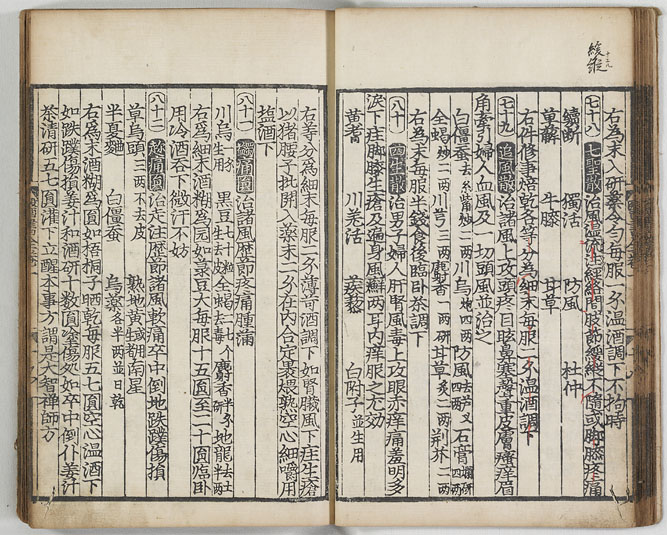 右為末入研藥令勻每服一分溫酒調下不拘時
七十八 七聖散 治風溫流注經絡間肢節緩縱不隨或脚膝疼痛
續斷 獨活 防風 杜仲
萆薢 牛膝 甘草
右件修事焙乾各等分為細末每服二分溫酒調下
七十九 追風散 治諸風上攻頭疼目眩鼻塞聲重皮膚瘙痒眉
角牽引婦人血風及一切頭風並治之
白僵蚕去糸觜炒二兩 川烏炮四兩 防風去芦叉四兩 石膏爛研四兩
全蝎炒二兩 川芎二兩 麝香一兩研 甘草炙二兩 荊芥二兩
右為末每服半錢食後臨臥茶調下
八十 四生散 治男子婦人肝腎風毒上攻眼赤痒痛羞明多
淚下疰脚膝生瘡及遍身風癬兩耳內痒服之尤効
黃耆 川羌活 蒺藜 白附子並生用
右等分為細末每服二分薄荷酒調下如腎臟風下疰生瘡
以猪腰子批開入藥末二分在內合定裹煨熟空心細嚼用
塩酒下
八十一 痛圓 治諸風歷節疼痛腫蒲
川烏生用 黑豆七十粒生 全蝎七个去毒 麝香半分研 地龍半兩去土
右為細末酒糊為圓如菉豆大每服十五圓至二十圓臨臥
用冷酒吞下微汗不妨
八十二 痛圓 治走注歷節諸風軟痛卒中倒地跌蹼傷損
草烏頭三兩不去皮 熟地黃 南星
半夏麯 白僵蚕 烏藥各半兩並日乾
右為末酒糊為圓如梧桐子晒乾每服五七圓空心溫酒下
如跌蹼傷損姜汁和酒研十数圓塗傷処如卒中倒仆姜汁
茶清研五七圓灌下立醒本事方謂是大智禅師方